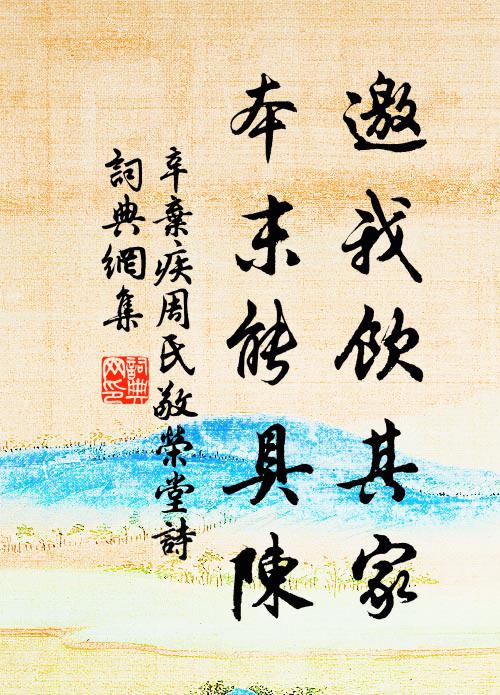 邀我飲其家
本末能具陳
辛棄疾周氏敬榮堂詩
詞典網集
詞典
网印